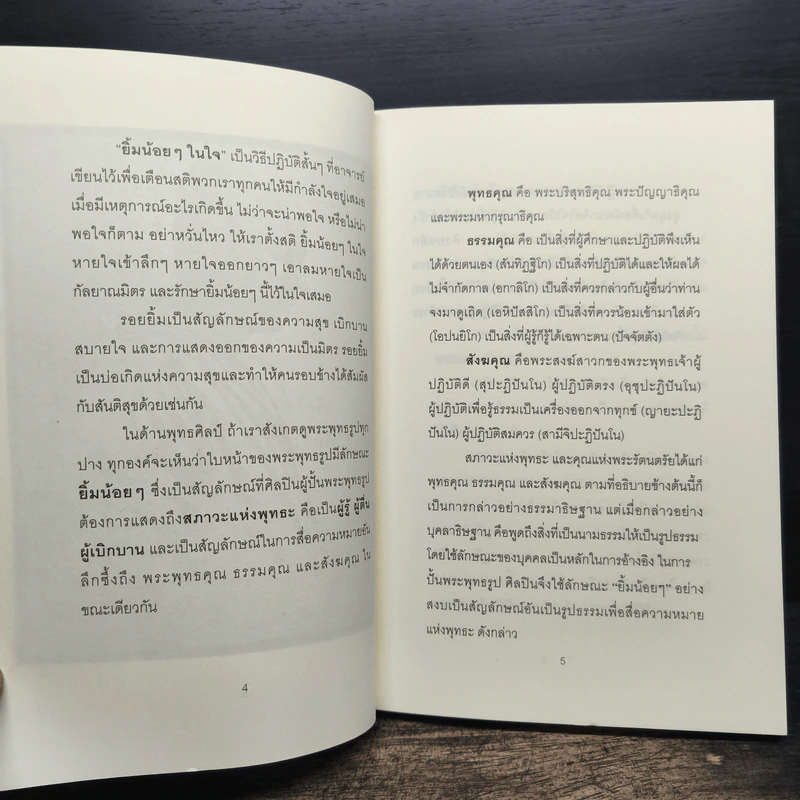 "ยิ้มน้อยๆ ในใจ" เป็นวิธีปฏิบัติสั้นๆ ที่อาจารย์
เขียนไว้เพื่อเตือนสติพวกเราทุกคนให้มีกำลังใจอยู่เสมอ
เมื่อมีเหตุการณ์อะไรเกิดขึ้น ไม่ว่าจะน่าพอใจ หรือไม่น่า
พอใจก็ตาม อย่าหวั่นไหว ให้เราตั้งสติ ยิ้มน้อยๆ ในใจ
หายใจเข้าลึกๆ หายใจออกยาวๆ เอาลมหายใจเป็น
กัลยาณมิตร และรักษายิ้มน้อยๆ นี้ไว้ในใจเสมอ
รอยยิ้มเป็นสัญลักษณ์ของความสุข เบิกบาน
สบายใจ และการแสดงออกของความเป็นมิตร รอยยิ้ม
เป็นบ่อเกิดแห่งความสุขและทำให้คนรอบข้างได้สัมผัส
กับสันติสุขด้วยเช่นกัน
ในด้านพุทธศิลป์ ถ้าเราสังเกตดูพระพุทธรูปทุก
ปาง ทุกองค์จะเห็นว่าใบหน้าของพระพุทธรูปมีลักษณะ
ยิ้มน้อยๆ ซึ่งเป็นสัญลักษณ์ที่ศิลปินผู้ปั้นพระพุทธรูป
ต้องการแสดงถึงสภาวะแห่งพุทธะ คือเป็นผู้รู้ ผู้ตื่น
ผู้เบิกบาน และเป็นสัญลักษณ์ในการสื่อความหมายอัน
ลึกซึ้งถึง พระพุทธคุณ ธรรมคุณ และสังฆคุณ ใน
ขณะเดียวกัน
4
พุทธคุณ คือ พระบริสุทธิคุณ พระปัญญาธิคุณ
และพระมหากรุณาธิคุณ
ธรรมคุณ คือ เป็นสิ่งที่ผู้ศึกษาและปฏิบัติพึงเห็น
ได้ด้วยตนเอง (สันทิฏฐิโก) เป็นสิ่งที่ปฏิบัติได้และให้ผลได้
ไม่จำกัดกาล (อกาลิโก) เป็นสิ่งที่ควรกล่าวกับผู้อื่นว่าท่าน
จงมาดูเถิด (เอหิปัสสิโก) เป็นสิ่งที่ควรน้อมเข้ามาใส่ตัว
(โอปนยิโก) เป็นสิ่งที่ผู้รู้ก็รู้ได้เฉพาะตน (ปัจจัตตัง)
สังฆคุณ คือพระสงฆ์สาวกของพระพุทธเจ้าผู้
ปฏิบัติดี (สุปะฏิปันโน) ผู้ปฏิบัติตรง (อุชุปะฏิปันโน)
ผู้ปฏิบัติเพื่อรู้ธรรมเป็นเครื่องออกจากทุกข์ (ญายะปะฏิ
ปันโน) ผู้ปฏิบัติสมควร (สามีจิปะฏิปันโน)
สภาวะแห่งพุทธะ และคุณแห่งพระรัตนตรัยได้แก่
พุทธคุณ ธรรมคุณ และสังฆคุณ ตามที่อธิบายข้างต้นนี้ก็
เป็นการกล่าวอย่างธรรมาธิษฐาน แต่เมื่อกล่าวอย่าง
บุคลาธิษฐาน คือพูดถึงสิ่งที่เป็นนามธรรมให้เป็นรูปธรรม
โดยใช้ลักษณะของบุคคลเป็นหลักในการอ้างอิง ในการ
ปั้นพระพุทธรูป ศิลปินจึงใช้ลักษณะ "ยิ้มน้อยๆ" อย่าง
สงบเป็นสัญลักษณ์อันเป็นรูปธรรมเพื่อสื่อความหมาย
แห่งพุทธะ ดังกล่าว
5